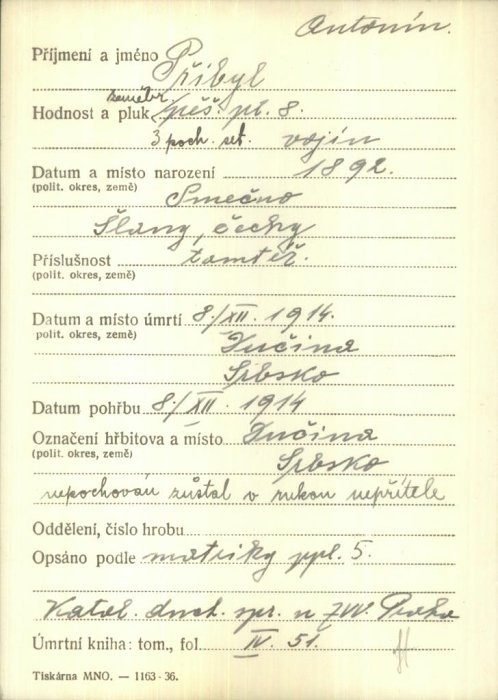 Antonín.
Příjmení a jméno Přibyl
zeměbr.
Hodnost a pluk pěš. pl. 8.
3 poch. set. vojín
Datum a místo narození 1892.
(polit. okres, země) Smečno
Slaný, Čechy
Příslušnost tamtéž.
(polit. okres, země)
Datum a místo úmrtí 8./XII. 1914.
polit. okres, země) Dučina
Srbsko
Datum pohřbu 8./XII. 1914
Označení hřbitova a místo Dučina
(polit. okres, země) Srbsko
nepochován zůstal v rukou nepřítele
Oddělení, číslo hrobu
Opsáno podle matriky ppl. 5.
Katol. duch. spr. u ZVV. Praha
Úmrtní kniha: tom., fol. IV. 51.
Tiskárna MNO. — 1163-36.